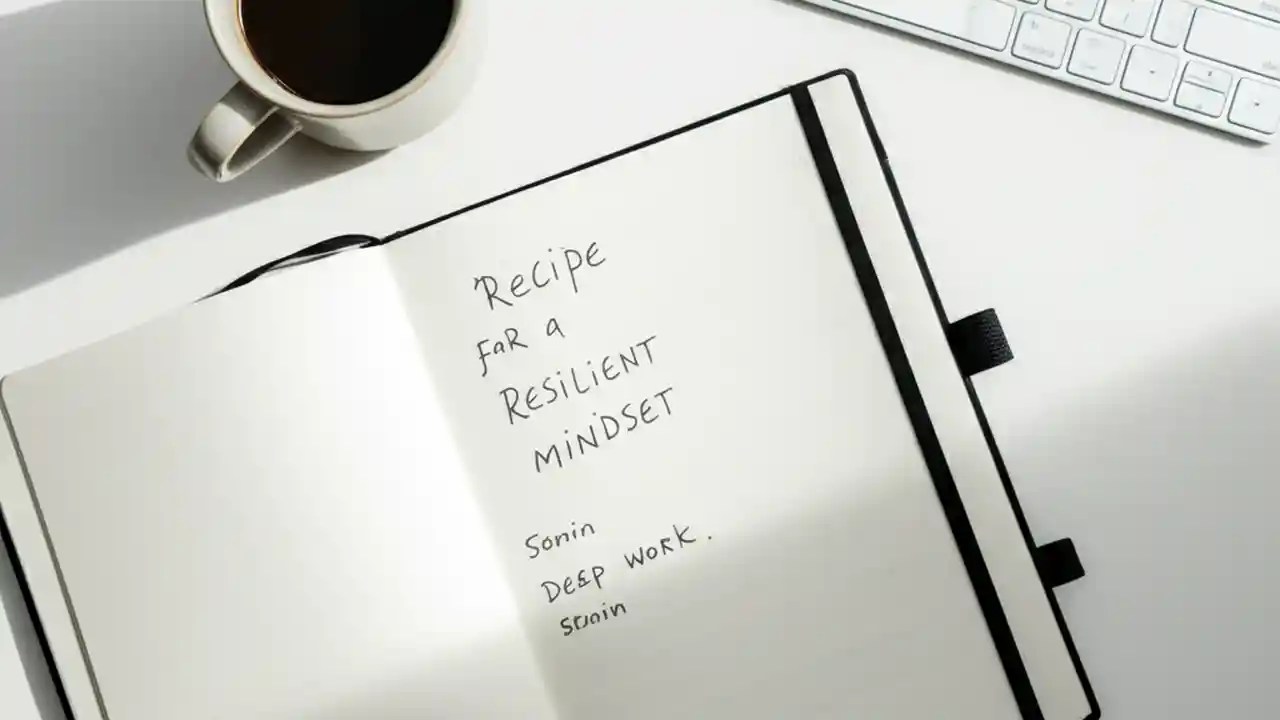 RECIPE
FOR A
RESILIENT
MINDSET
Sonin
DEEP WORK.
Stoin